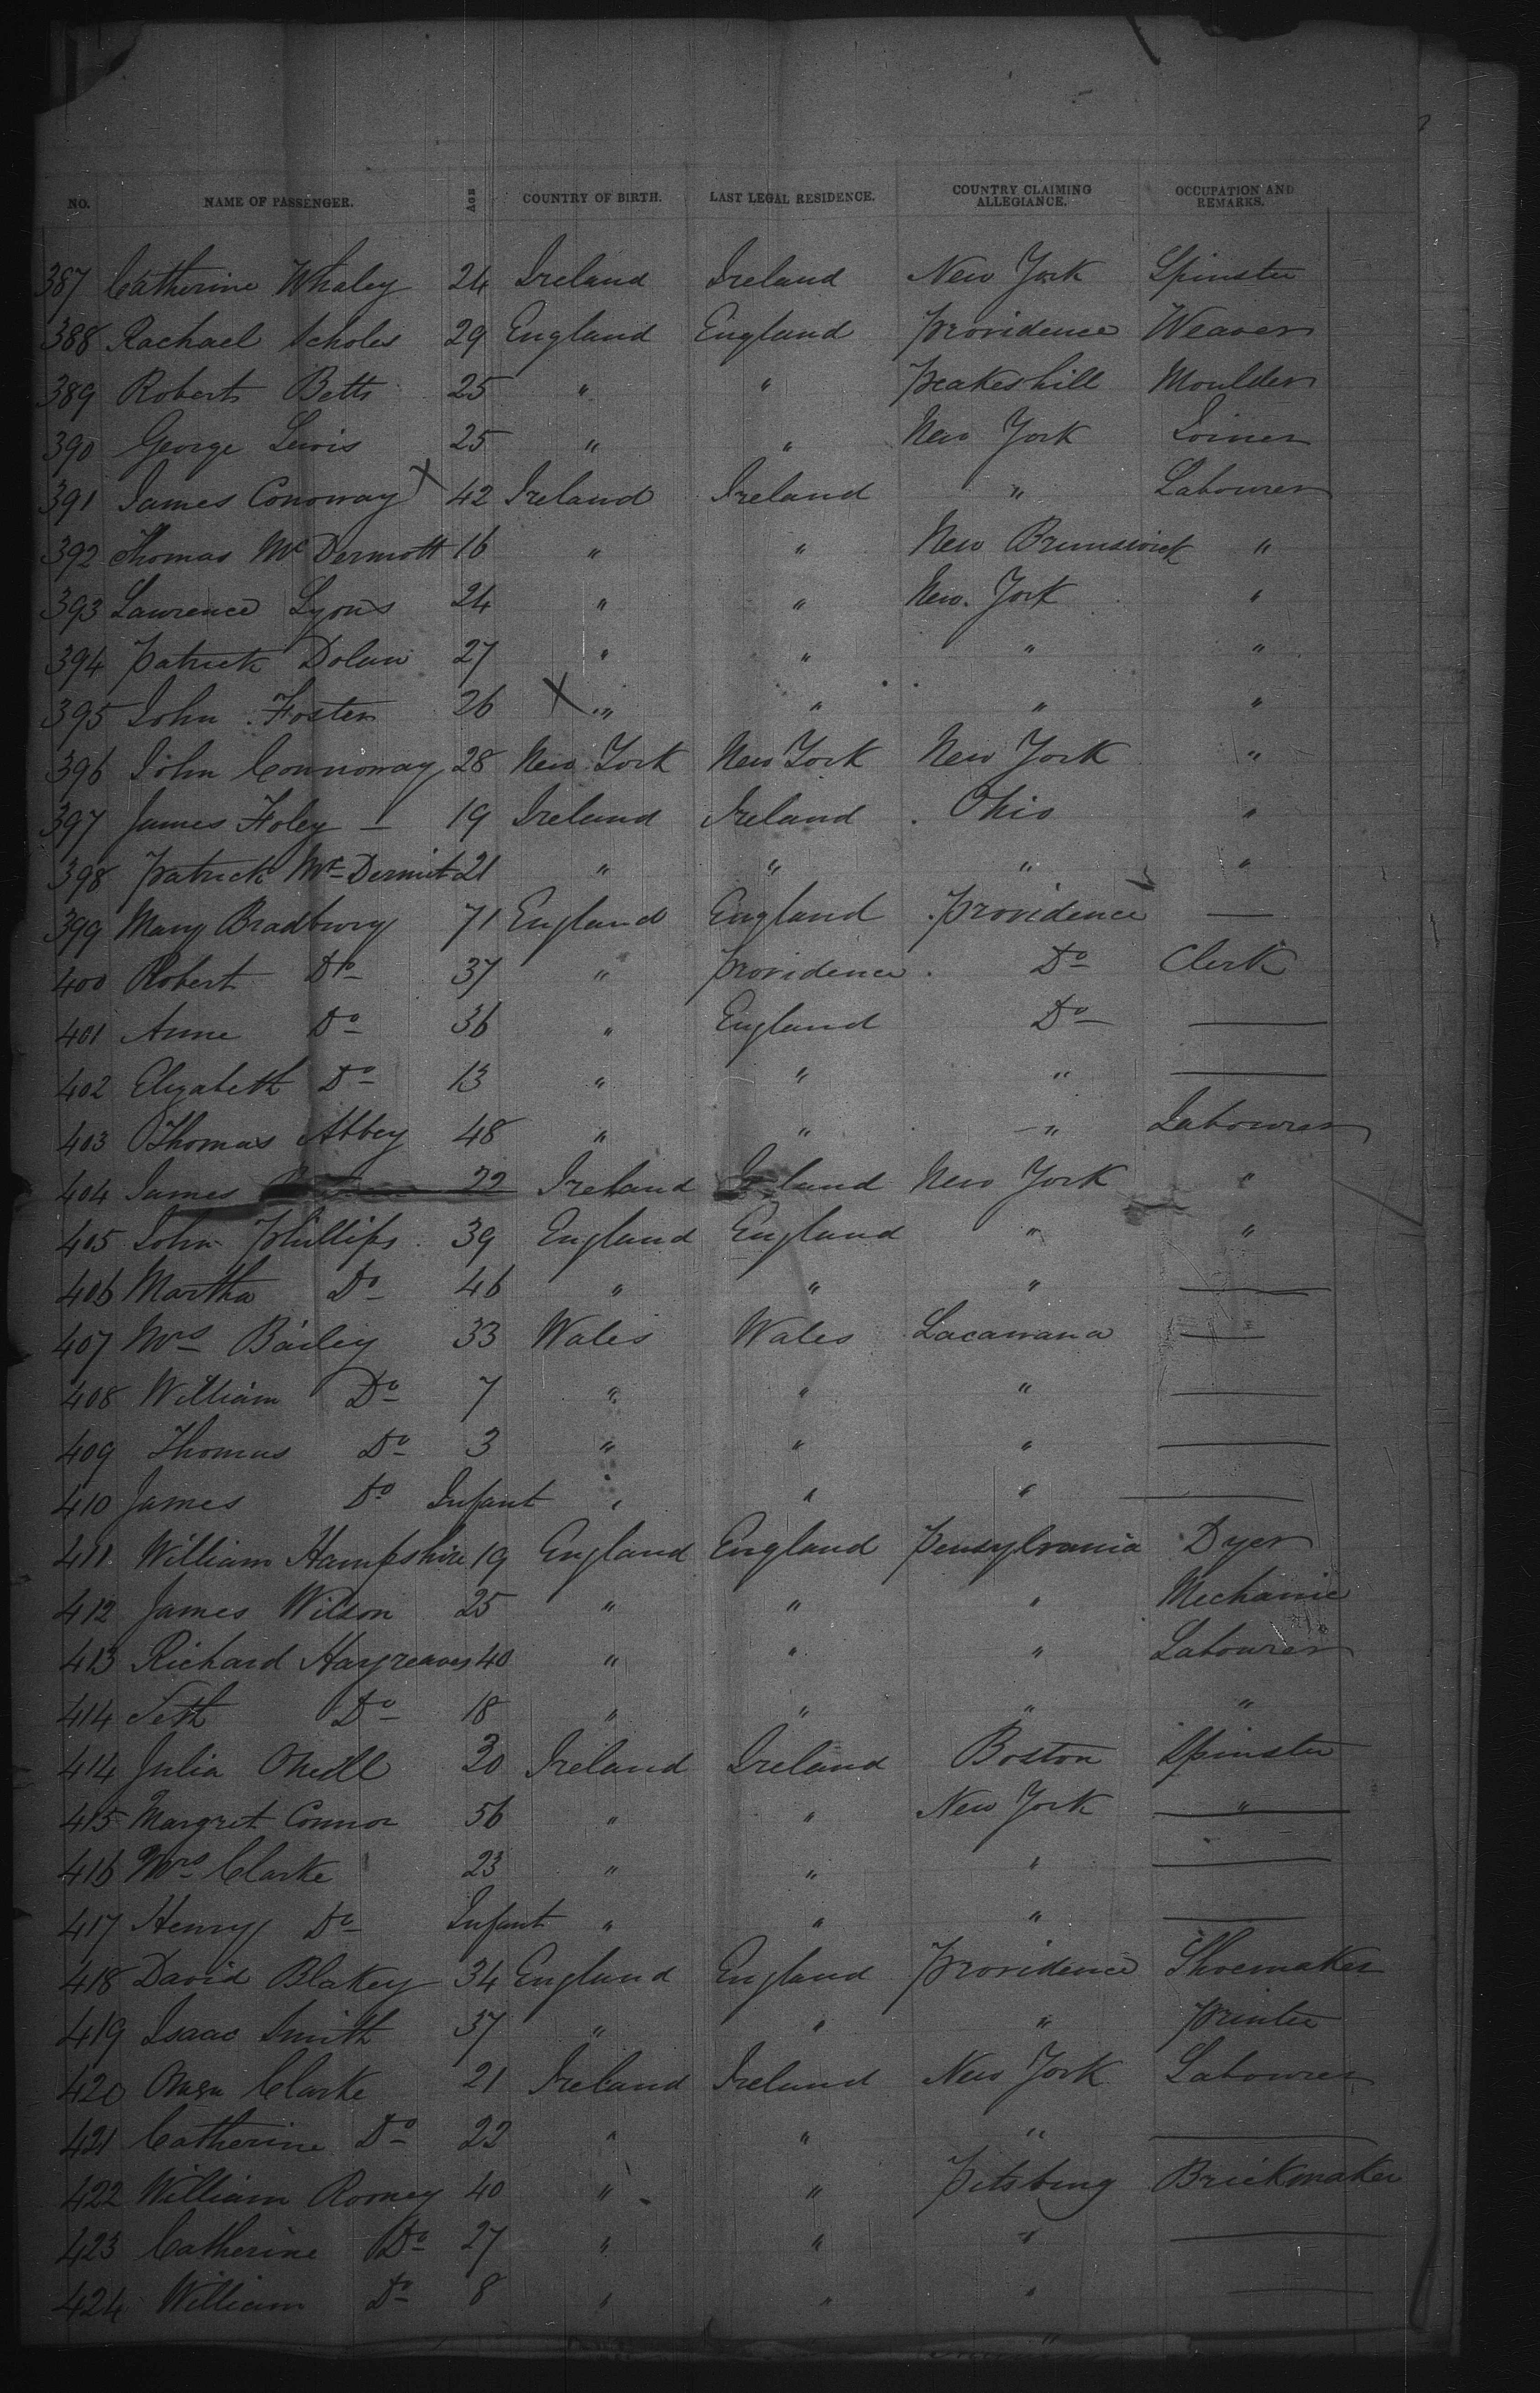 NO. NAME OF PASSENGER. AGE COUNTRY OF BIRTH. LAST LEGAL RESIDENCE. COUNTRY CLAIMING ALLEGIANCE. OCCUPATION AND REMARKS.
387 Catherine Whaley 24 Ireland Ireland New York Spinster
388 Rachael Scholes 29 England England Providence Weaver
389 Robert Betts 25 " " Peakeshill Moulder
390 George Lewis 25 " " New York Joiner
391 James Conoway X 42 Ireland Ireland " Labourer
392 Thomas McDermott 16 " " New Brunswick "
393 Lawrence Lyons 24 " " New York "
394 Patrick Dolan 27 " " " "
395 John Foster 26 X " " " "
396 John Connoway 28 New York New York New York "
397 James Foley — 19 Ireland Ireland Ohio "
398 Patrick McDermit 21 " " " "
399 Mary Bradbury 71 England England Providence —
400 Robert Do 37 " Providence Do Clerk
401 Anne Do 36 " England Do —
402 Elizabeth Do 13 " " " —
403 Thomas Abbey 48 " " " Labourer
404 James 22 Ireland Ireland New York "
405 John Phillips 39 England England " "
406 Martha Do 46 " " " —
407 Mrs Bailey 33 Wales Wales Lacawana —
408 William Do 7 " " " —
409 Thomas Do 3 " " " —
410 James Do Infant " " " —
411 William Hampshire 19 England England Pensylvania Dyer
412 James Wilson 25 " " " Mechanic
413 Richard Hargreaves 40 " " " Labourer
414 Seth Do 18 " " " "
414 Julia Oneill 30 Ireland Ireland Boston Spinster
415 Margret Connor 56 " " New York "
416 Mrs Clarke 23 " " " —
417 Henry Do Infant " " " —
418 David Blakey 34 England England Providence Shoemaker
419 Isaac Smith 37 " " " Printer
420 Clarke 21 Ireland Ireland New York Labourer
421 Catherine Do 22 " " " —
422 William Rooney 40 " " Pitsburg Brickmaker
423 Catherine Do 27 " " " —
424 William Do 8 " " " —